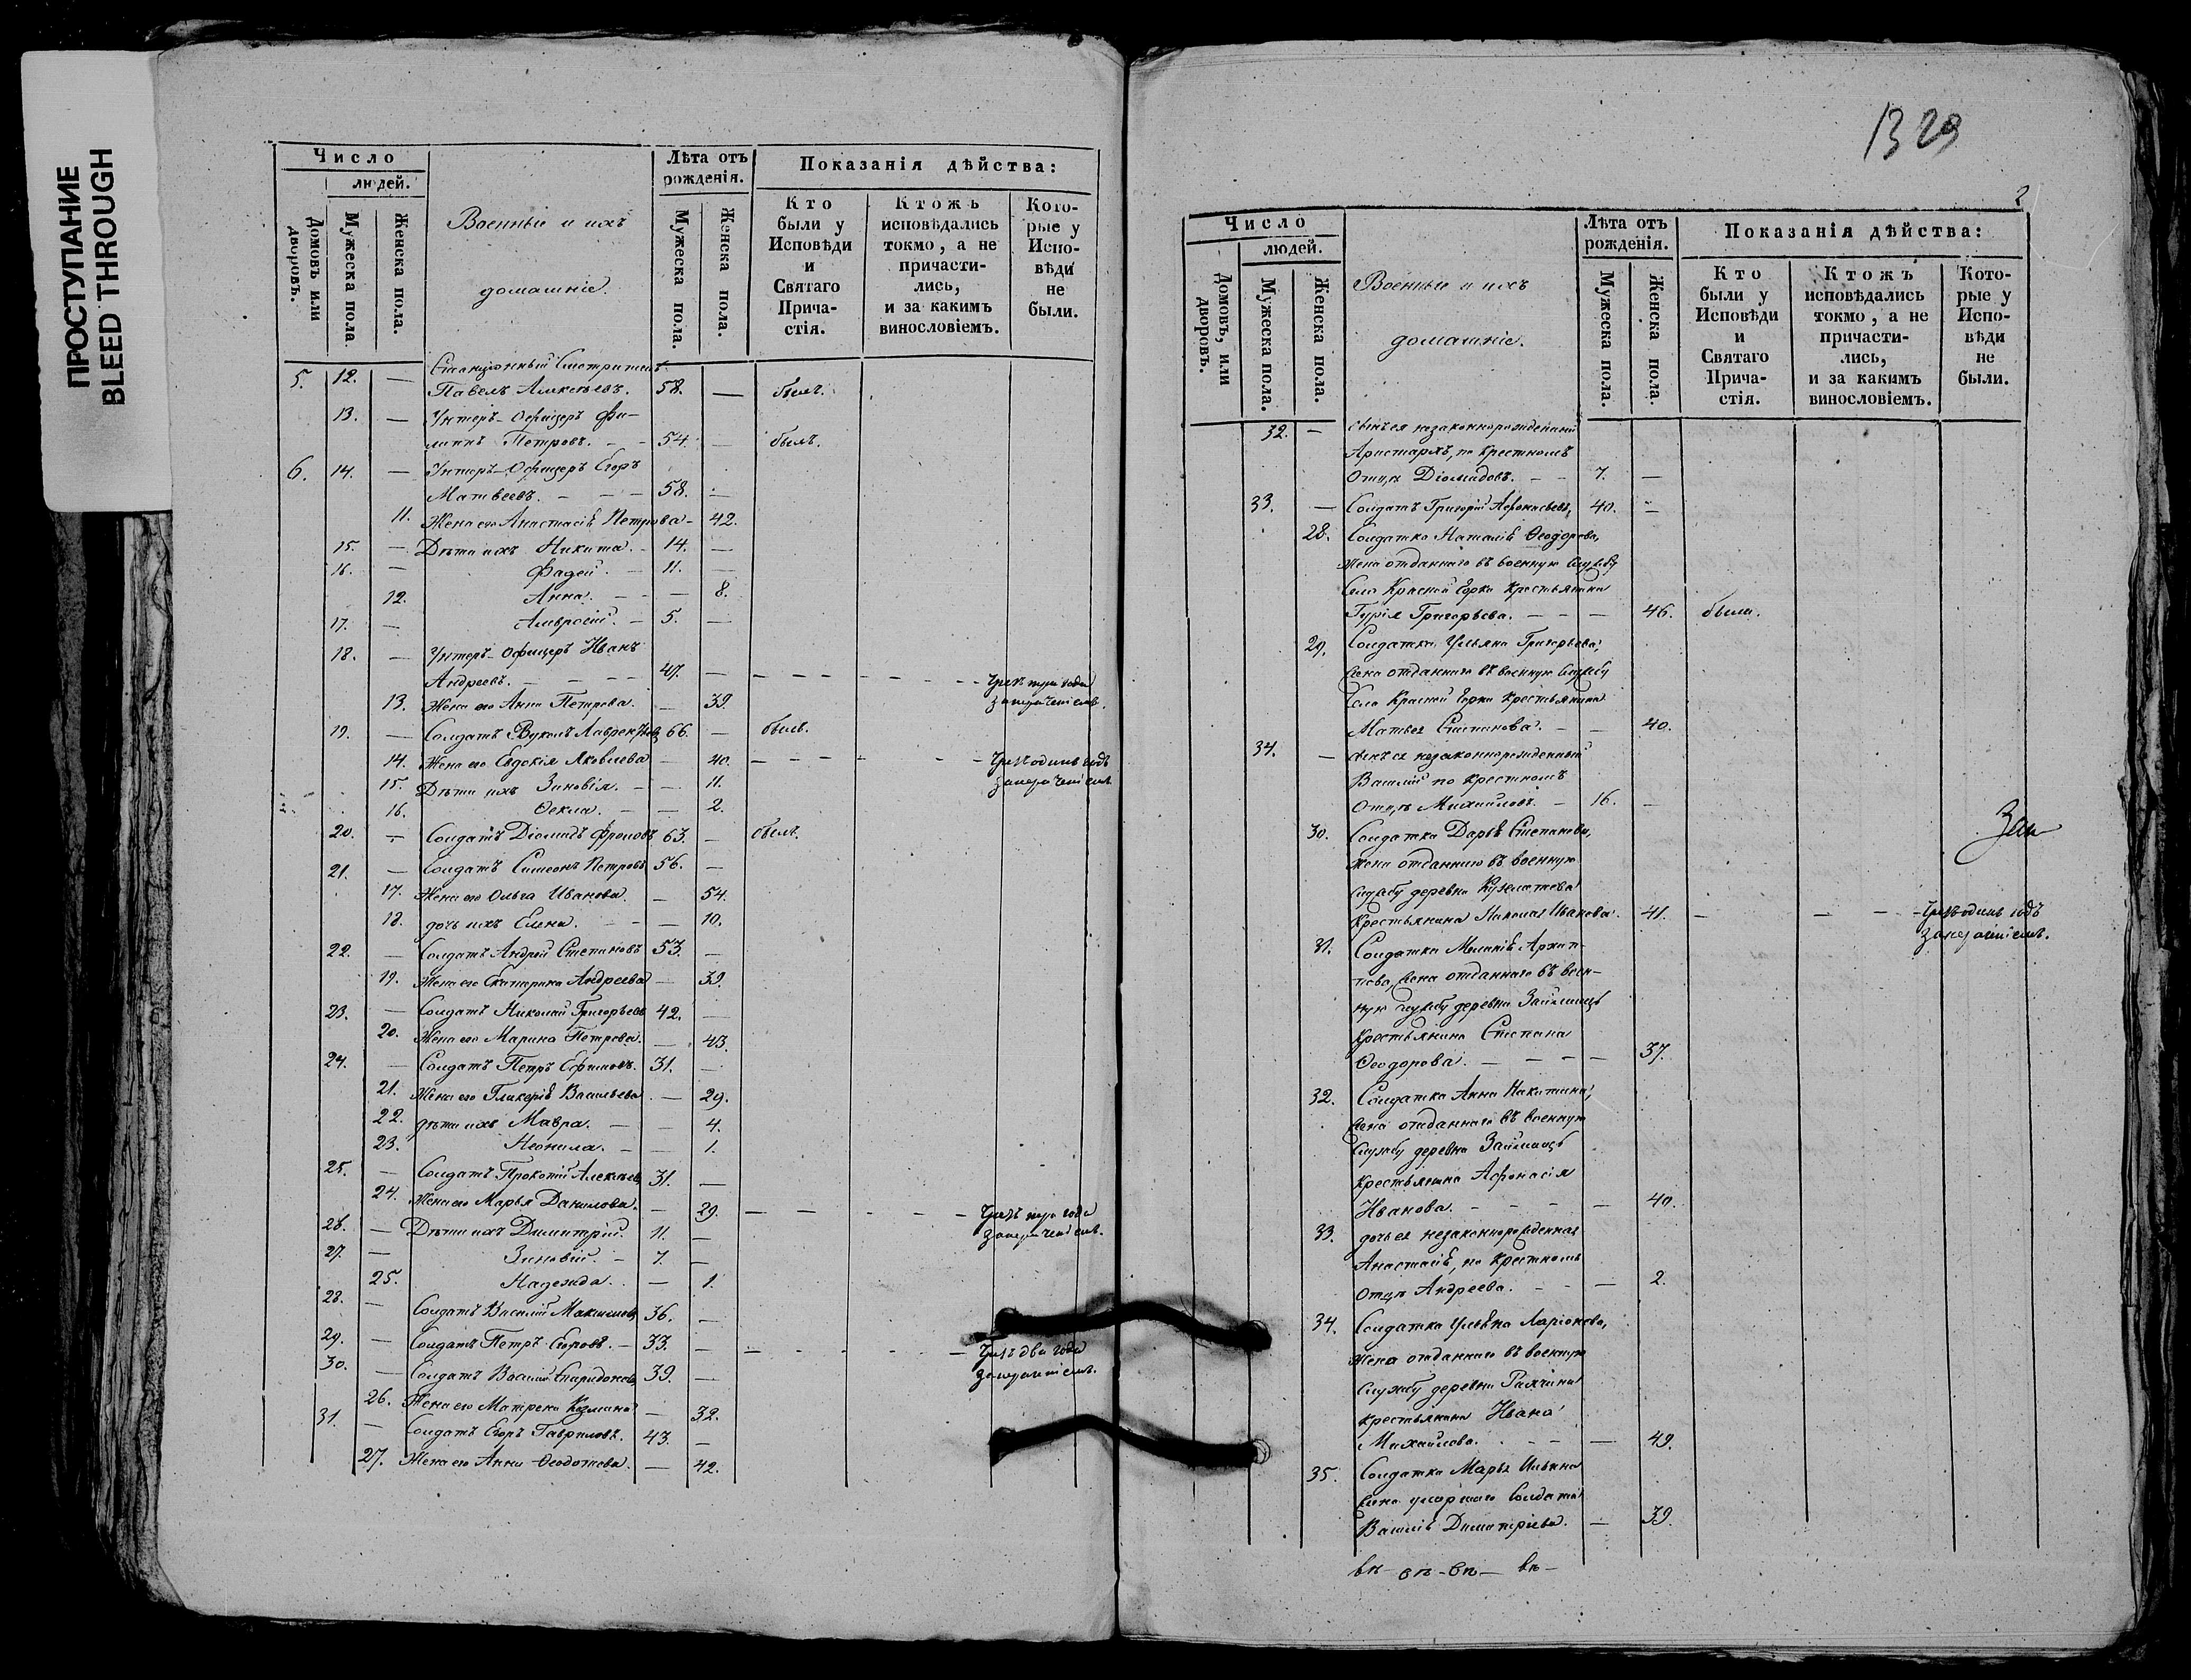 ПРОСТУПАНИЕ
BLEED THROUGH
Число
людей.
Домовъ или дворовъ.
Мужеска пола.
Женска пола.
Военные и ихъ
домашніе.
Лѣта отъ
рожденія.
Мужеска пола.
Женска пола.
Показанія дѣйства:
Кто
были у
Исповѣди
и
Святаго
Прича-
стія.
Ктожъ
исповѣдались
токмо, а не
причасти-
лись,
и за какимъ
винословіемъ.
Кото-
рые у
Испо-
вѣди
не
были.
Станціонный Смотритель
5. 12. — Павелъ Алексѣевъ. 58. — былъ.
13. — Унтеръ-Офицеръ Фи-
липпъ Петровъ. - - 54. — былъ.
6. 14. — Унтеръ-Офицеръ Егоръ
Матвеевъ. - - - 58. —
11. Жена его Анастасія Петрова - 42.
15. — Дѣти ихъ Никита. - 14. —
16. — Фадей. - 11. —
12. Анна. - - — 8.
17. — Амвросій. - 5. —
18. — Унтеръ-Офицеръ Иванъ
Андреевъ. - - - - 47. — - - - - - - - - Чрезъ три года
13. Жена его Анна Петрова. — 39. за
19. — Солдатъ Вуколъ Лаврентьевъ 66. — былъ.
14. Жена его Евдокія Яковлева — 40. - - - - - - Чрезъ одинъ годъ
15. Дѣти ихъ Зиновія. - — 11. за
16. Ѳекла. - — 2.
20. — Солдатъ Діомидъ Фроловъ 63. — былъ.
21. — Солдатъ Симеонъ Петровъ 56. —
17. Жена его Ольга Иванова. — 54.
18. дочь ихъ Елена. - — 10.
22. — Солдатъ Андрей Степановъ 53. —
19. Жена его Екатерина Андреева — 39.
23. — Солдатъ Николай Григорьевъ 42. —
20. Жена его Марина Петрова. — 43.
24. — Солдатъ Петръ Ефимовъ. 31. —
21. Жена его Гликерія Васильева. — 29.
22. дѣти ихъ Мавра. - — 4.
23. Неонила. - — 1.
25. — Солдатъ Прокопій Алексѣевъ 31. —
24. Жена его Марья Данилова. — 29. - - - - - Чрезъ три года
26. — Дѣти ихъ Димитрій. 11. — за
27. — Зиновій. - 7. —
25. Надежда. - — 1.
28. — Солдатъ Василій Максимовъ 36. —
29. — Солдатъ Петръ Егоровъ. - 33. — - - - - - - Чрезъ два года
30. — Солдатъ Василій Спиридоновъ 39. — за
26. Жена его Матрена Козмина — 32.
31. — Солдатъ Егоръ Гавриловъ. 43. —
27. Жена его Анна Ѳеодотова. — 42.
1329
2
Число
людей.
Домовъ, или дворовъ.
Мужеска пола.
Женска пола.
Военные и ихъ
домашніе.
Лѣта отъ
рожденія.
Мужеска пола.
Женска пола.
Показанія дѣйства:
Кто
были у
Исповѣди
и
Святаго
Прича-
стія.
Ктожъ
исповѣдались
токмо, а не
причасти-
лись,
и за какимъ
винословіемъ.
Кото-
рые у
Испо-
вѣди
не
были.
32. — сынъ ея незаконнорожденный
Аристархъ, по крестномъ
Отцѣ Діомидовъ. - - 7. —
33. — Солдатъ Григорій Афонасьевъ, 40. —
28. Солдатка Наталія Ѳеодорова,
жена отданнаго въ военную службу
Села Красной Горки крестьянина
Гурія Григорьева. - - — 46. были.
29. Солдатка Ульяна Григорьева,
жена отданнаго въ военную службу
Села Красной Горки крестьянина
Матвея Степанова. - — 40.
34. — сынъ ея незаконнорожденный
Василій по крестномъ
Отцѣ Михайловъ. - 16. —
30. Солдатка Дарья Степанова,
жена отданнаго въ военную
службу деревни
крестьянина Николая Иванова. 41. — — — - Чрезъ одинъ годъ
31. Солдатка Меланія Архип- за
пова, жена отданнаго въ воен-
ную службу деревни Займищъ
крестьянина Степана
Ѳеодорова. - - - — 37.
32. Солдатка Анна Никитина,
жена отданнаго въ военную
службу деревни Займищъ
крестьянина Афонасія
Иванова. - - - — 40.
33. дочь ея незаконнорожденная
Анастасія, по крестномъ
Отцѣ Андреева. - - — 2.
34. Солдатка Ульяна Ларіонова,
жена отданнаго въ военную
службу деревни
крестьянина Ивана
Михайлова. - - - — 49.
35. Солдатка Марья Ильина
жена умершаго Солдата
Василія Димитріева. — 39.